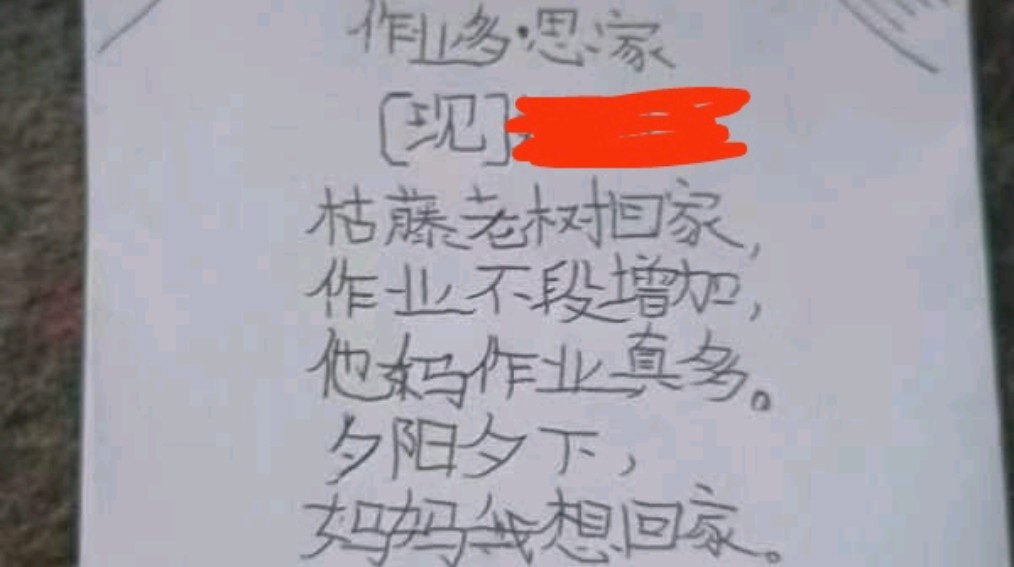 作业多·思家
[现]
枯藤老树回家,
作业不段增加,
他妈作业真多。
夕阳夕下,
妈妈我想回家。